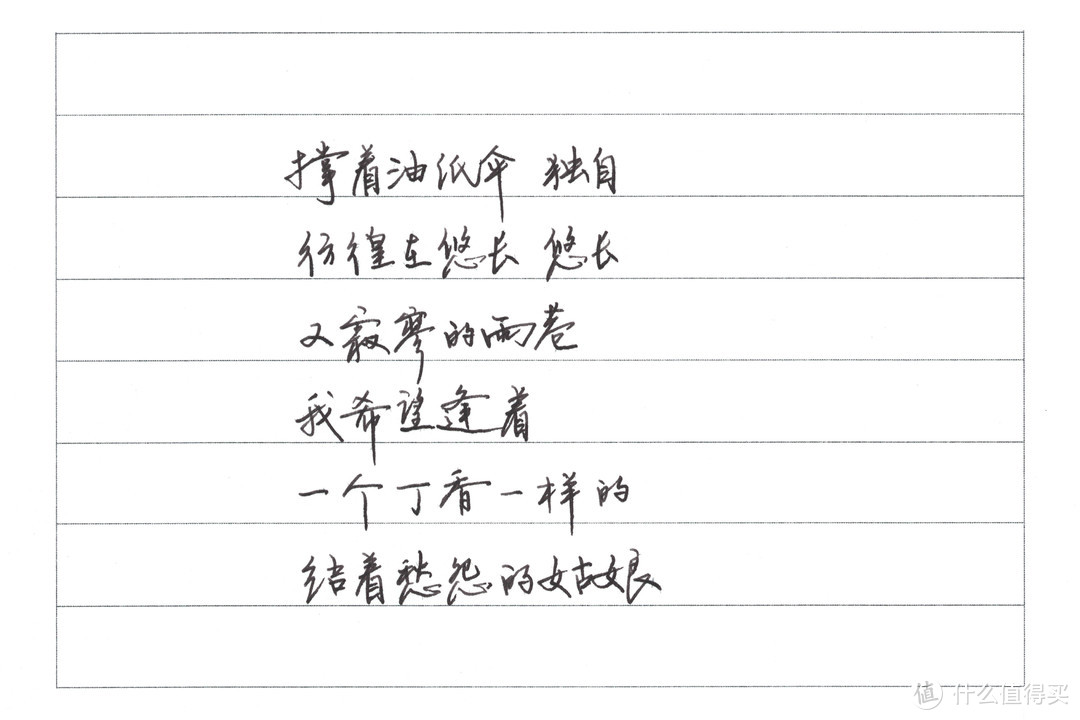 撑着油纸伞 独自
彷徨在悠长 悠长
又寂寥的雨巷
我希望逢着
一个丁香一样的
结着愁怨的姑娘
值 什么值得买